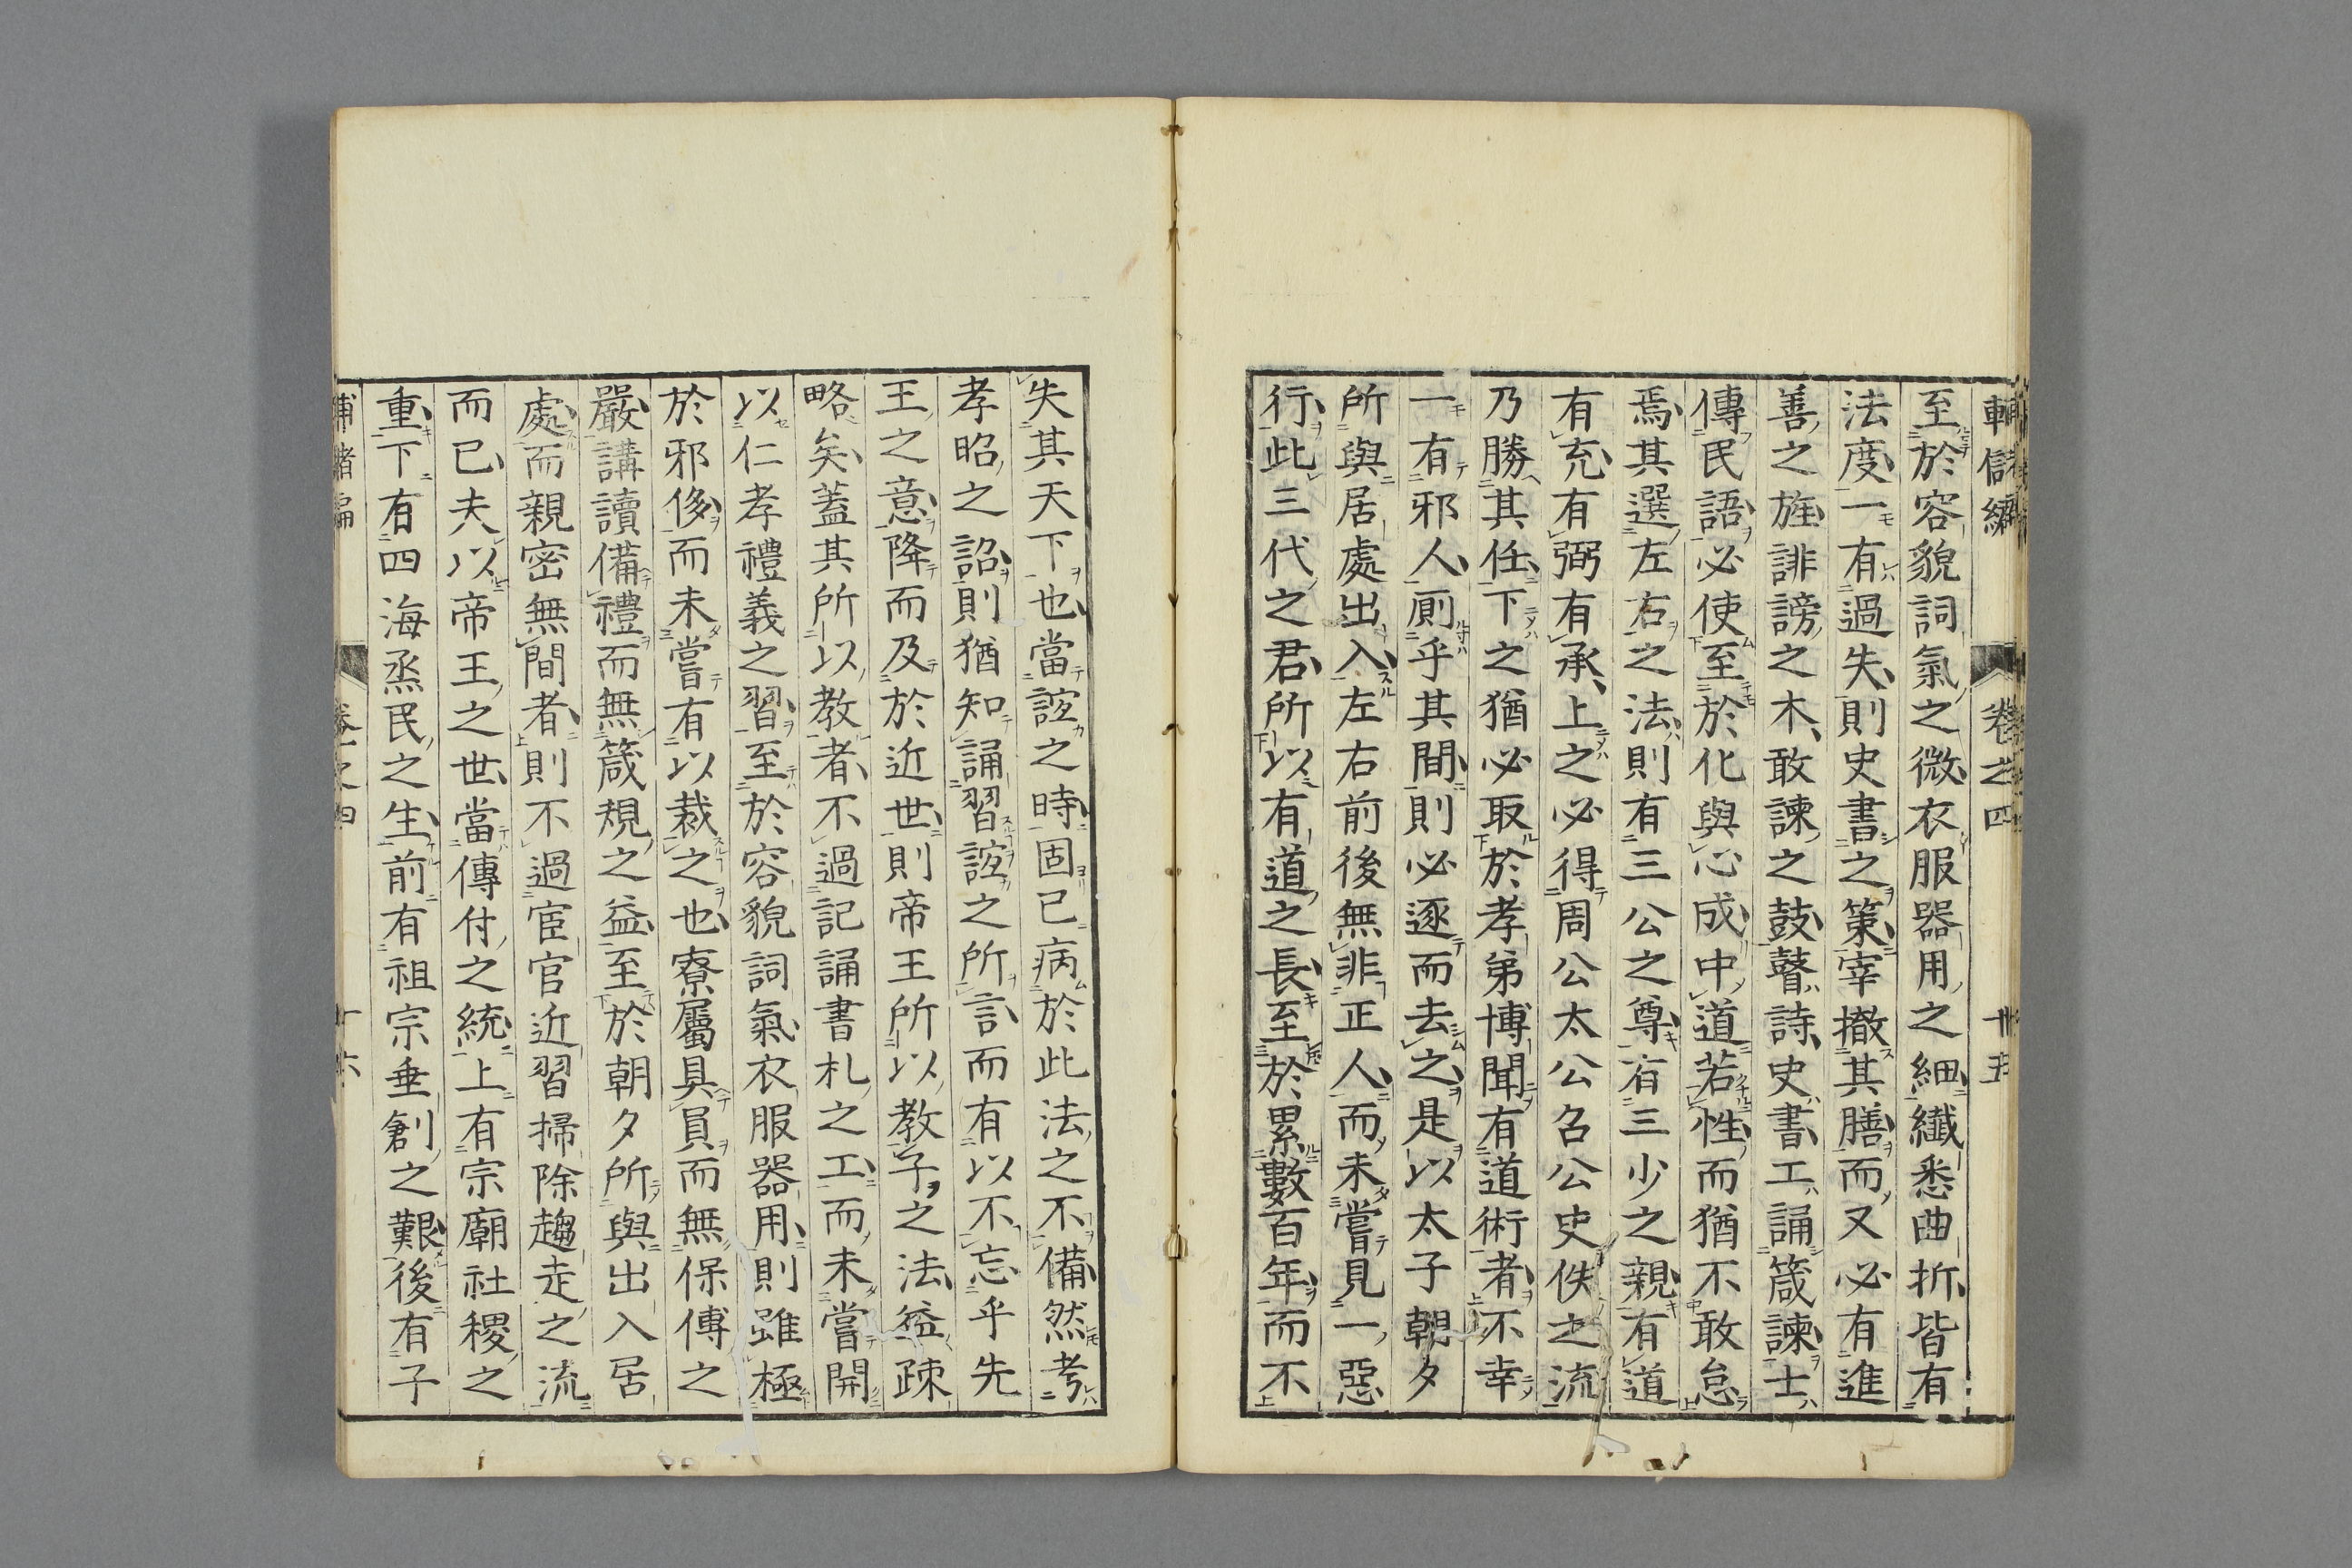 卷之四
至於容貌詞氣之微衣服器用之細纖悉曲折皆有
法度一有過失則史書之策宰撤其膳而又必有進
善之旌誹謗之木敢諫之鼓瞽詩史書工誦箴諫士
傳民語必使至於化與心成中道若性而猶不敢怠
焉其選左右之法則有三公之尊有三少之親有道
有充有弼有承上之必得周公太公召公史佚之流
乃勝其任下之猶必取於孝弟博聞有道術者不幸
一有邪人厠乎其間則必逐而去之是以太子朝夕
所與居處出入左右前後無非正人而未嘗見一惡
行此三代之君所以有道之長至於累數百年而不
失其天下也當誼之時固已病於此法之不備然考
孝昭之詔則猶知誦習誼之所言而有以不忘乎先
王之意降而及於近世則帝王所以教子之法益疎
略矣蓋其所以教者不過記誦書札之工而未嘗開
以仁孝禮義之習至於容貌詞氣衣服器用則雖極
於邪侈而未嘗有以裁之也寮屬具員而無保傅之
嚴講讀備禮而無箴規之益至於朝夕所與出入居
處而親密無間者則不過宦官近習掃除趨走之流
而已夫以帝王之世當傳付之統上有宗廟社稷之
重下有四海烝民之生前有祖宗垂創之艱後有子